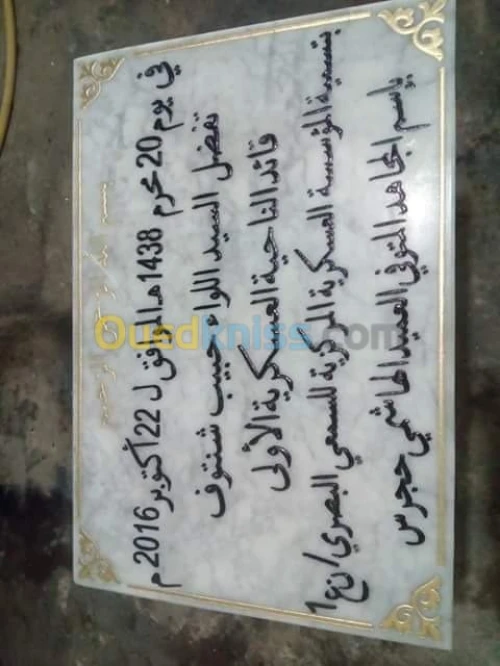 بسم الله الرحمن الرحيم
في يوم 20 محرم 1438هـ الموافق ل 22 أكتوبر 2016 م
تفضل السيد اللواء حبيب شنتوف
قائد الناحية العسكرية الأولى
بتسمية المؤسسة العسكرية المركزية للسمعي البصري/ن ع 1
باسم المجاهد المتوفي العميد الهاشمي حجرس
Ouedkniss.com